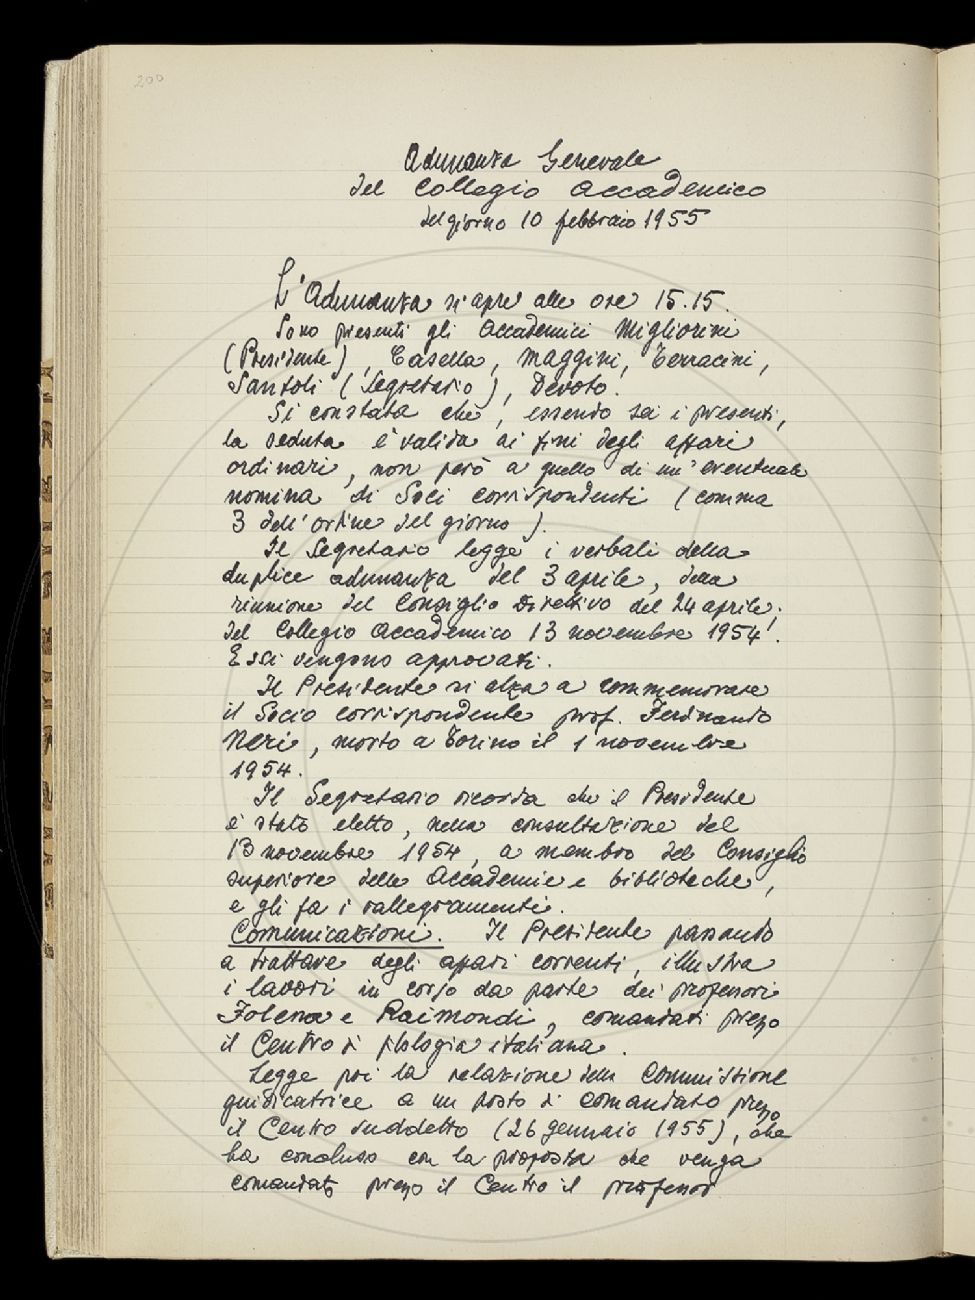 200
Adunanza Generale
del Collegio Accademico
del giorno 10 febbraio 1955
L'Adunanza si apre alle ore 15.15.
Sono presenti gli Accademici Migliorini
(Presidente), Casella, Maggini, Terracini,
Santoli (Segretario), Devoto.
Si constata che, essendo sei i presenti,
la seduta è valida ai fini degli affari
ordinari, non però a quello di un'eventuale
nomina di Soci corrispondenti (comma
3 dell'ordine del giorno).
Il Segretario legge i verbali della
duplice adunanza del 3 aprile, della
riunione del Consiglio Direttivo del 24 aprile,
del Collegio Accademico 13 novembre 1954.
Essi vengono approvati.
Il Presidente si alza a commemorare
il Socio corrispondente prof. Ferdinando
Neri, morto a Torino il 1 novembre
1954.
Il Segretario ricorda che il Presidente
è stato eletto, nella consultazione del
13 novembre 1954, a membro del Consiglio
superiore delle Accademie e biblioteche,
e gli fa i rallegramenti.
Comunicazioni. Il Presidente passando
a trattare degli affari correnti, illustra
i lavori in corso da parte dei professori
Folena e Raimondi, comandati presso
il Centro di filologia italiana.
Legge poi la relazione della Commissione
giudicatrice a un posto di comandato presso
il Centro suddetto (26 gennaio 1955), che
ha concluso con la proposta che venga
comandato presso il Centro il professor